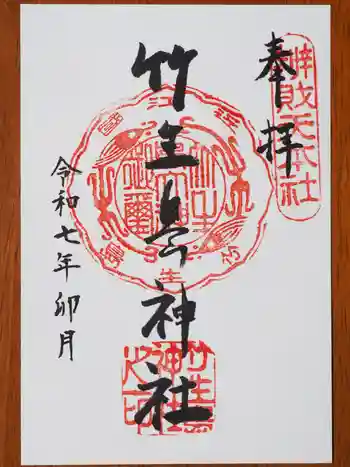 奉拝
辨財天本社
竹生島神社
竹生島
神社
之印
令和七年卯月